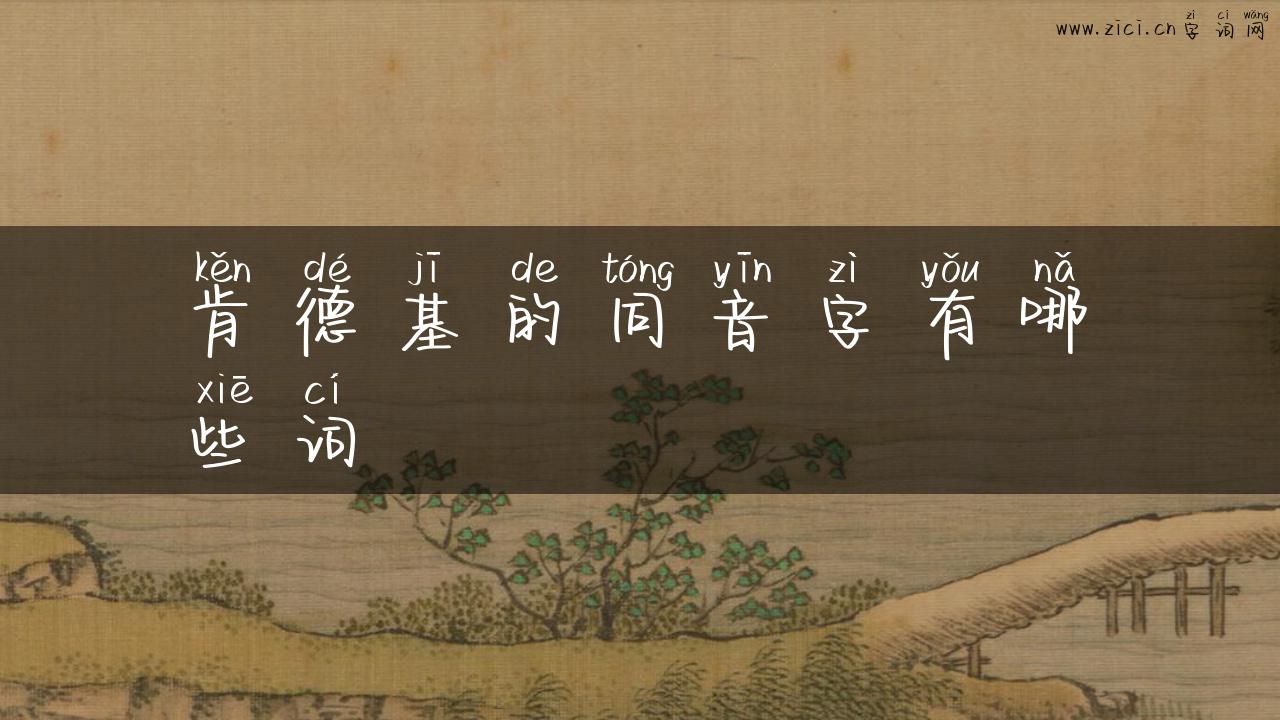 zì cí wǎng
www.zici.cn 字词网
kěn dé jī de tóng yīn zì yǒu nǎ
肯德基的同音字有哪
xiē cí
些词